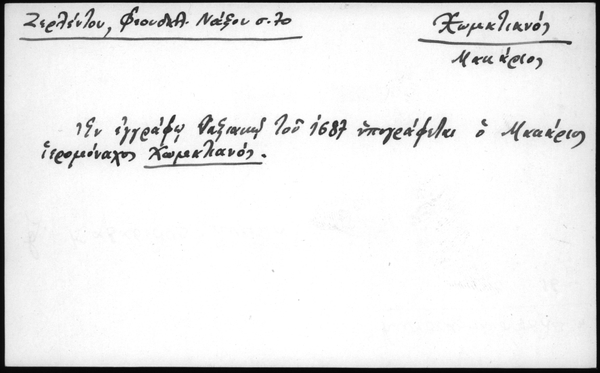 Ζερλέντου, Φεουδαλ. Νάξου σ. 70
Χωματιανός
Μακάριος
Ἐν ἐγγράφῳ Ναξιακῷ τοῦ 1687 ὑπογράφεται ὁ Μακάριος
ἱερομόναχος Χωματιανός.